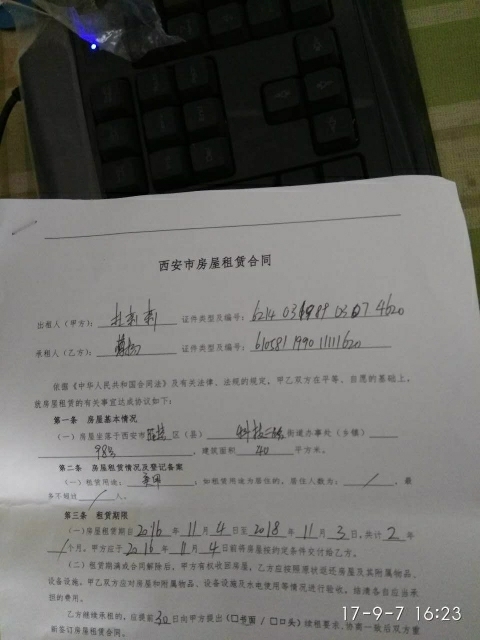 西安市房屋租赁合同
出租人（甲方）： 证件类型及编号：
承租人（乙方）： 证件类型及编号：610581199011111620
依据《中华人民共和国合同法》及有关法律、法规的规定，甲乙双方在平等、自愿的基础上，
就房屋租赁的有关事宜达成协议如下：
第一条 房屋基本情况
（一）房屋坐落于西安市 区（县） 街道办事处（乡镇）
98号 ，建筑面积 40 平方米。
第二条 房屋租赁情况及登记备案
（一）租赁用途： ；如租赁用途为居住的，居住人数为： / ，最
多不超过 / 人。
第三条 租赁期限
（一）房屋租赁期自 2016 年 11 月 4 日至 2018 年 11 月 3 日，共计 2 年
/ 个月。甲方应于 2016 年 11 月 4 日前将房屋按约定条件交付给乙方。
（二）租赁期满或合同解除后，甲方有权收回房屋，乙方应按照原状返还房屋及其附属物品、
设备设施。甲乙双方应对房屋和附属物品、设备设施及水电使用等情况进行验收，结清各自应当承
担的费用。
乙方继续承租的，应提前 30 日向甲方提出（□书面／□口头）续租要求，协商一致后双方重
新签订房屋租赁合同。
17-9-7 16:23